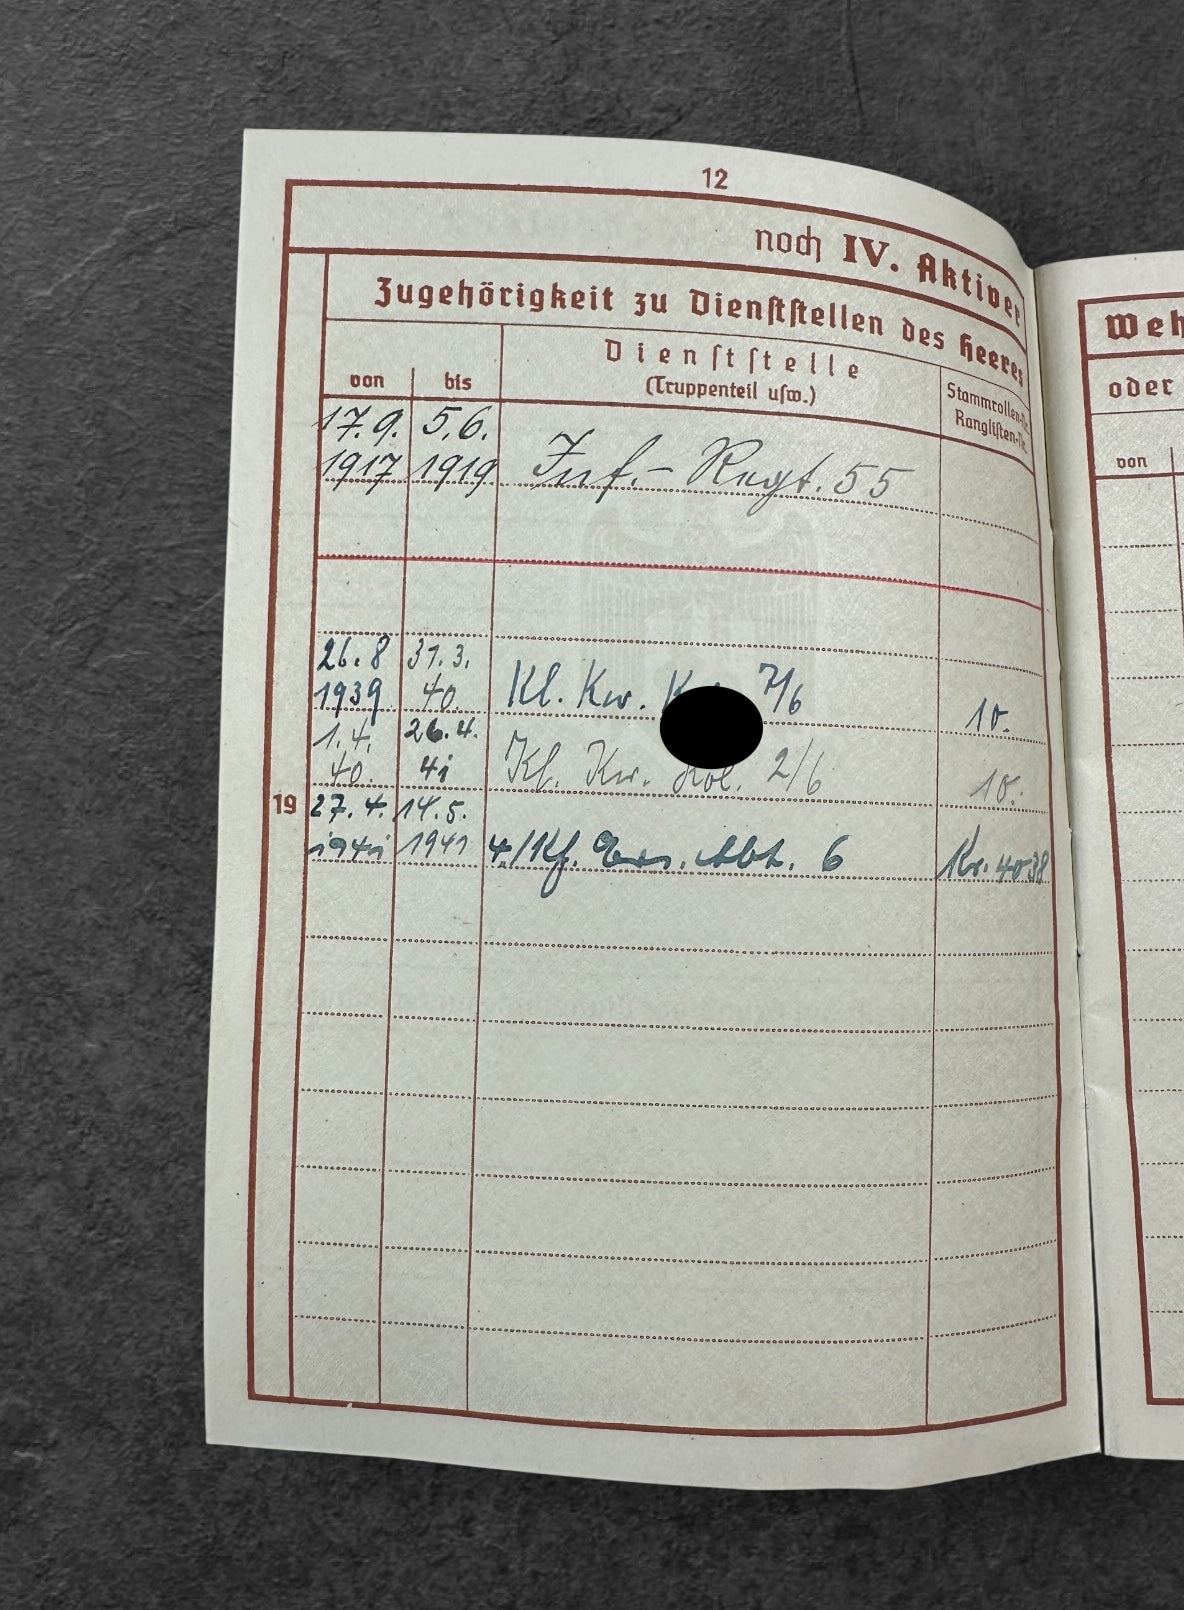 12
noch IV. Aktiver
Zugehörigkeit zu Dienststellen des Heeres
von bis
Dienststelle
(Truppenteil usw.)
Stammrollen-Nr.
Ranglisten-Nr.
17.9. 5.6.
1917 1919 Inf.- Regt. 55
26.8 31.3.
1939 40. Kl. Kw. 7/6 10.
1.4. 26.4.
40. 41 Kl. Kw. Kol. 2/6 10.
19 27.4. 14.5.
1941 1941 4./Kf. Ers. Abt. 6 Kr. 4038
Weh
oder
von